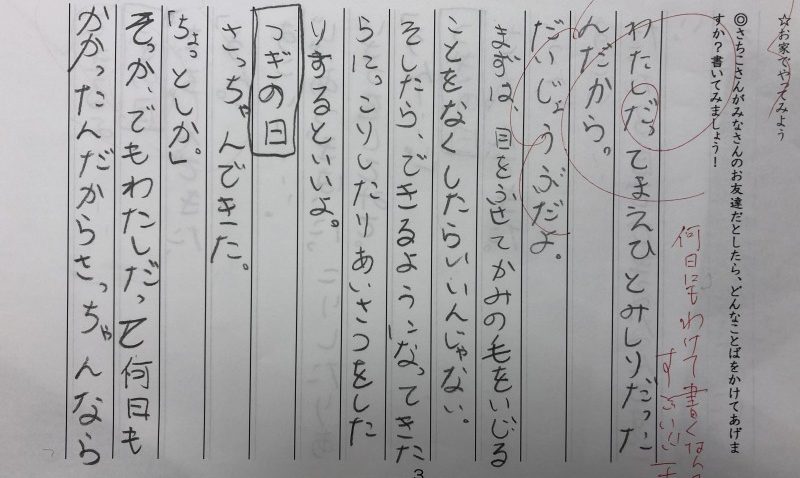 ☆お家でやってみよう
◎さちこさんがみなさんのお友達だとしたら、どんなことばをかけてあげま
すか？書いてみましょう！
何日にもわけて書くなんて
すごい
わたしだってまえひとみしりだった
んだから。
だいじょうぶだよ。
まずは、目をふせてかみの毛をいじる
ことをなくしたらいいんじゃない。
そしたら、できるようになってきた
らにっこりしたりあいさつをした
りするといいよ。
つぎの日
さっちゃんできた。
「ちょっとしか」
そっか、でもわたしだって何日も
かかったんだからさっちゃんなら
3